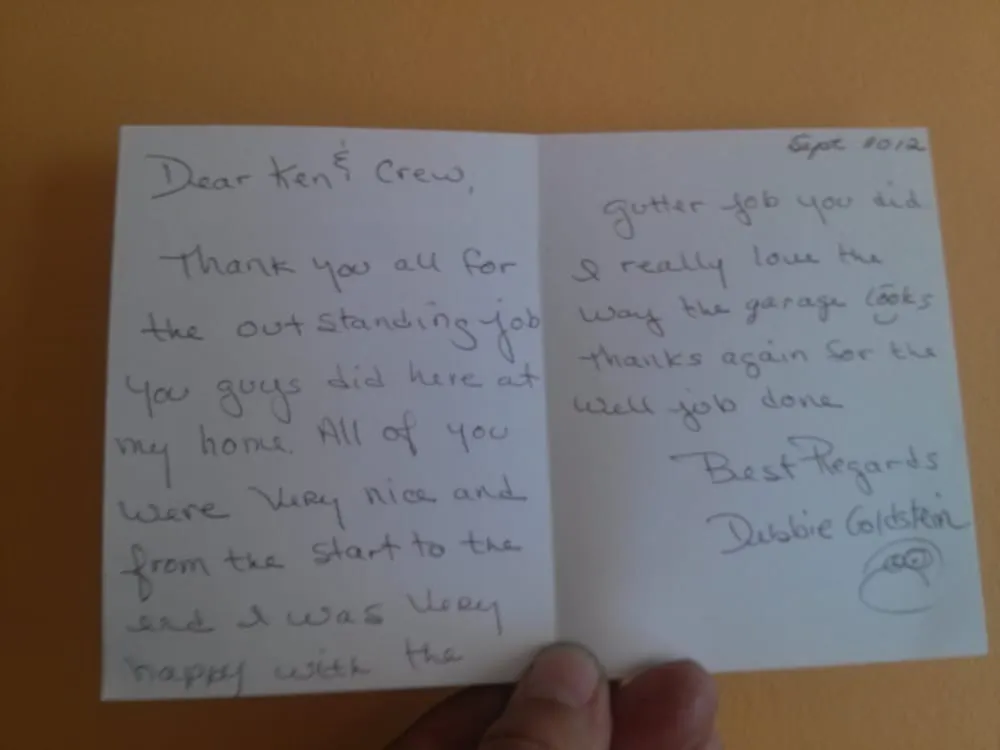 Dear Ken & Crew,
Thank you all for
the outstanding job
you guys did here at
my home. All of you
were very nice and
from the start to the
end I was very
happy with the
Sept 2012
gutter job you did.
I really love the
way the garage looks
thanks again for the
well job done
Best Regards
Debbie Goldstein